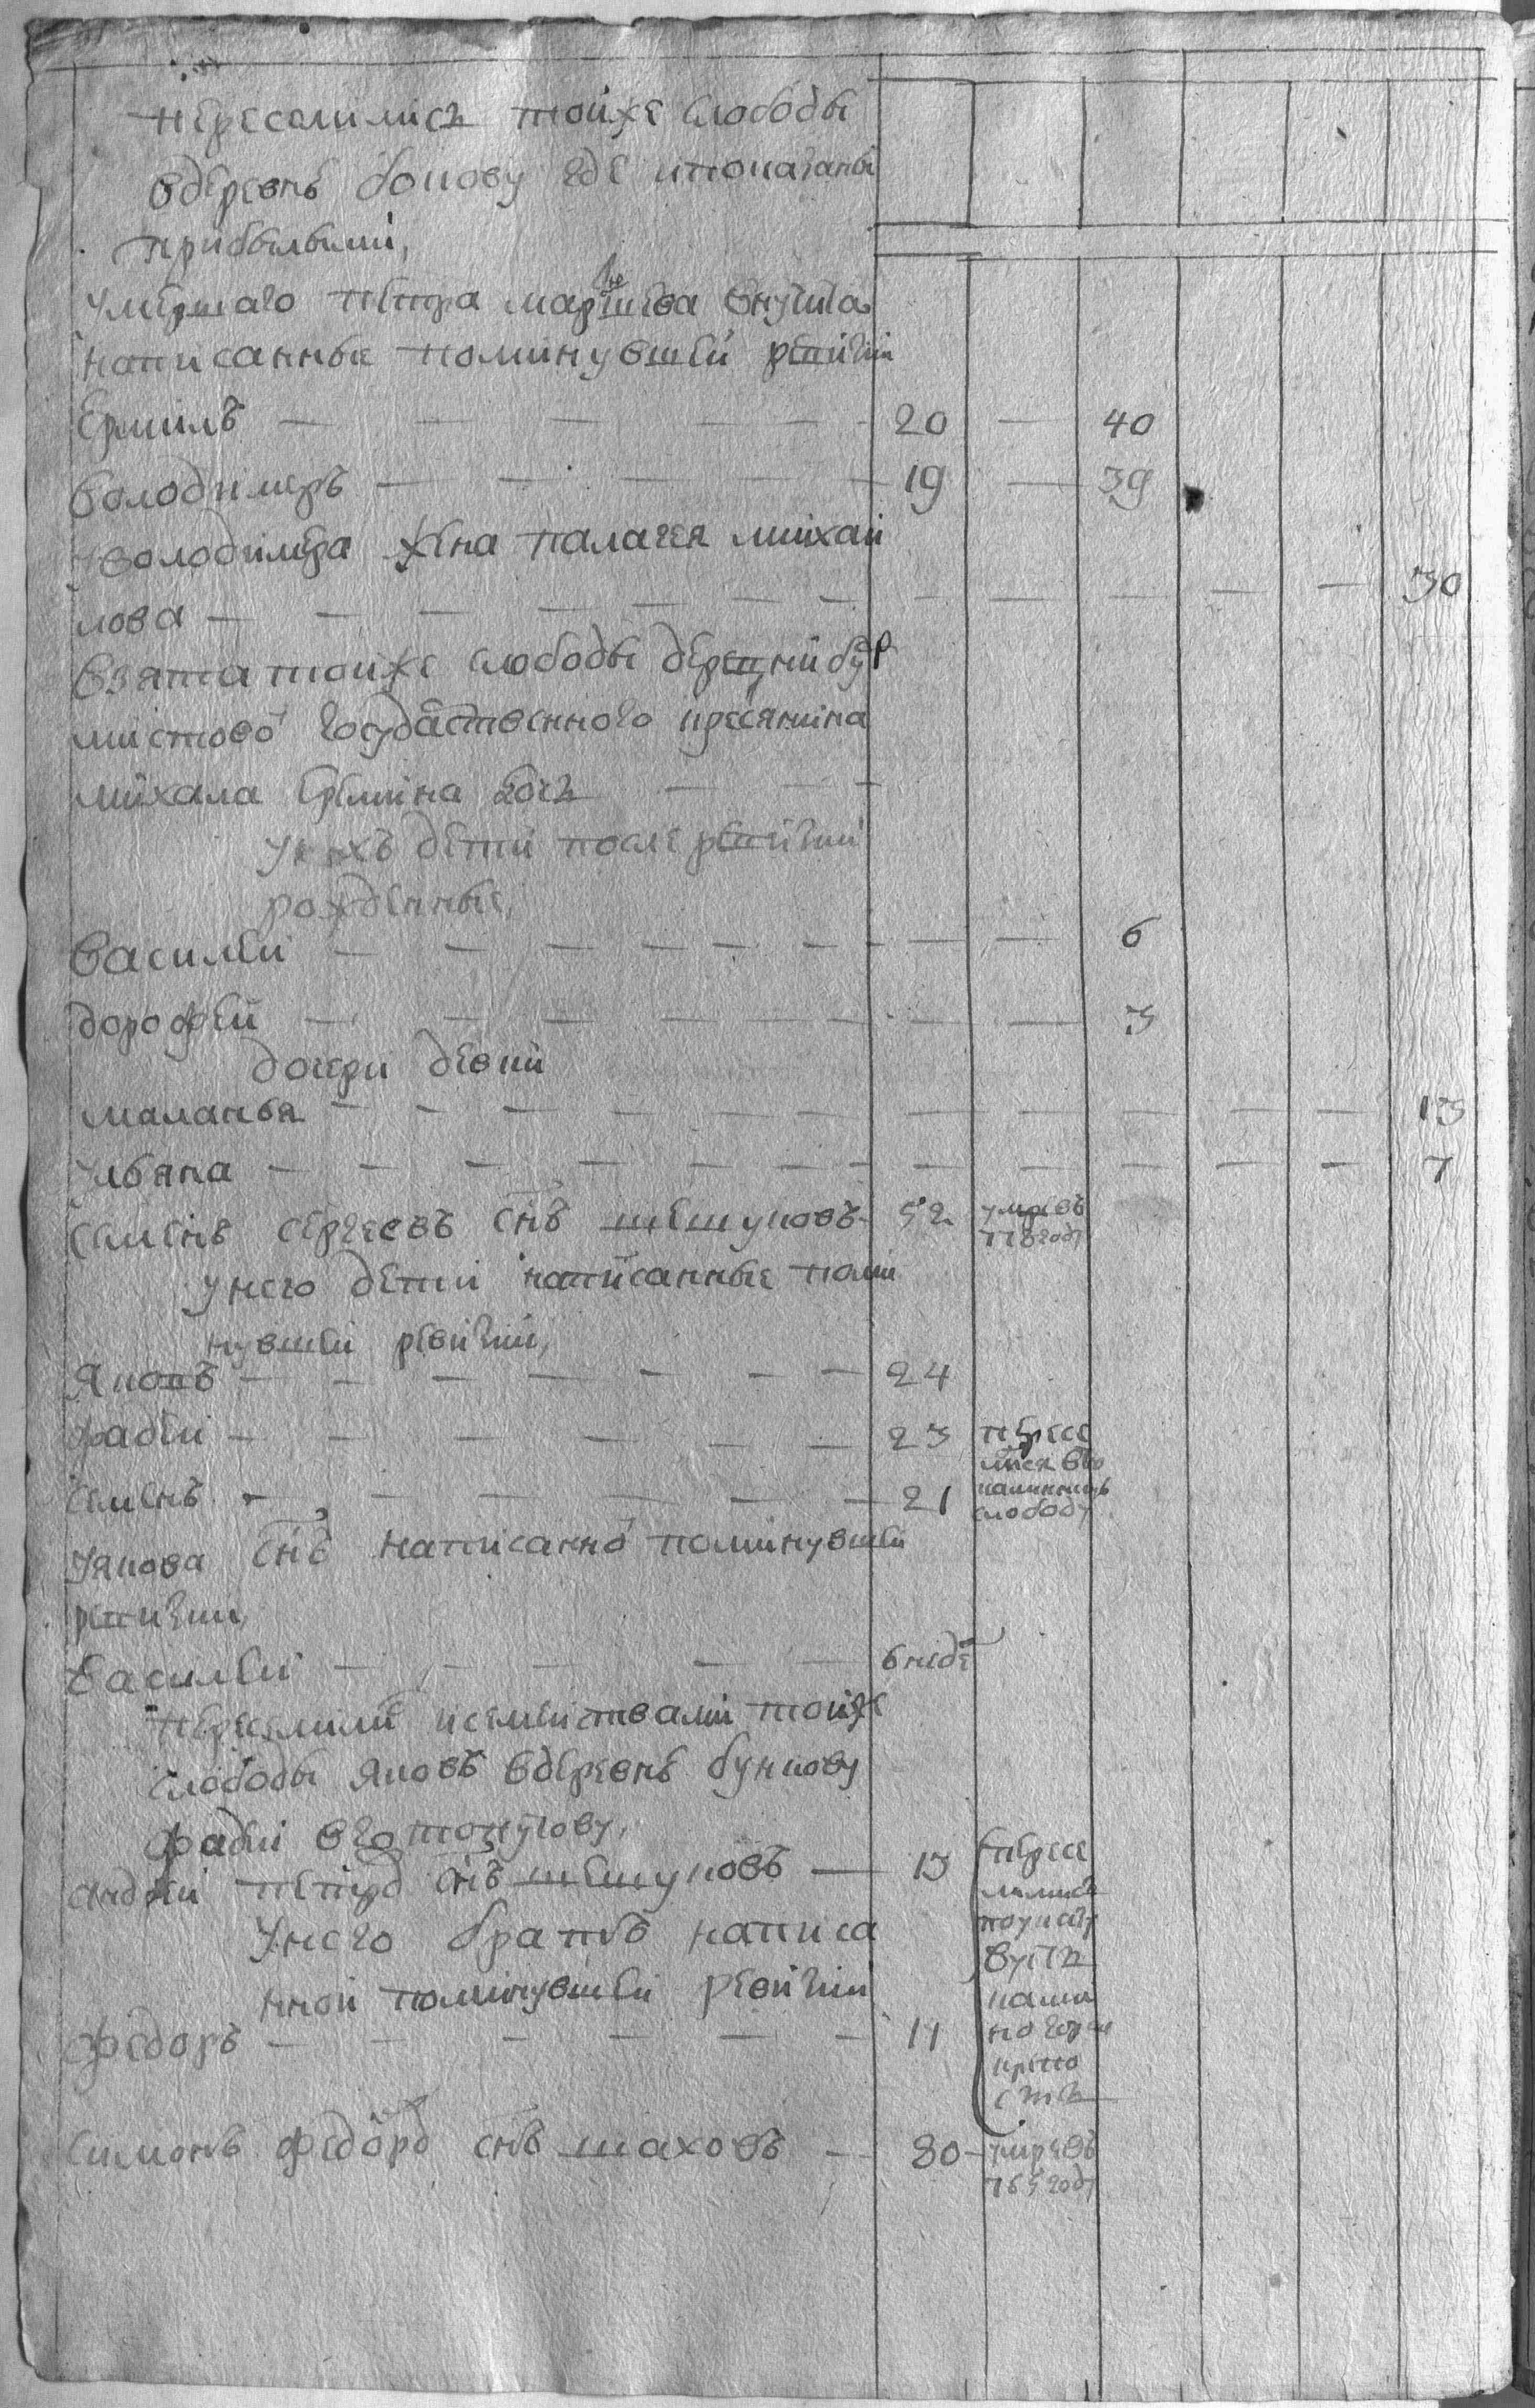 переселились тойже слободы
вдеревнѣ бокову где ипоказаны
прибылыми,
умершаго петра мартнева внучита
написанные поминувшей ревизии
Ермилъ — 20 — 40
володимеръ — 19 — 39
уволодимера жена палагея михай
лова — 30
взята тойже слободы деревни бур
мистово государственного кресянина
михала Еремина дочь —
уних дети после ревизии
рожденные,
василей — 6
дорофей — 3
дочери девки
маланья — 13
ульяна — 7
семенъ сергеевъ снъ шешуковъ — 52 умре въ
768 году
унего дети написанные поми
нувшей ревизии,
Яковъ — 24
фадеи — 23 пересе
лися въ
семенъ — 21
слободу
Уякова снъ написанно поминувшей
ревизии,
василеи — 6 неде
переселились исемействами тойже
слободы яковъ вдеревнѣ букову
фадеи
андреи петро снъ шешуковъ — 13 пересе
лились
унего братъ написа
нной поминувшей ревизии
федоръ — 11
крепо
сть
симонъ федоро снъ шаховъ — 80 — умре въ
765 году